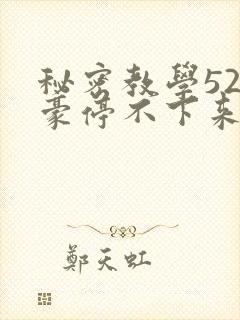 秘密教學52
豪停不下来
鄭天虹